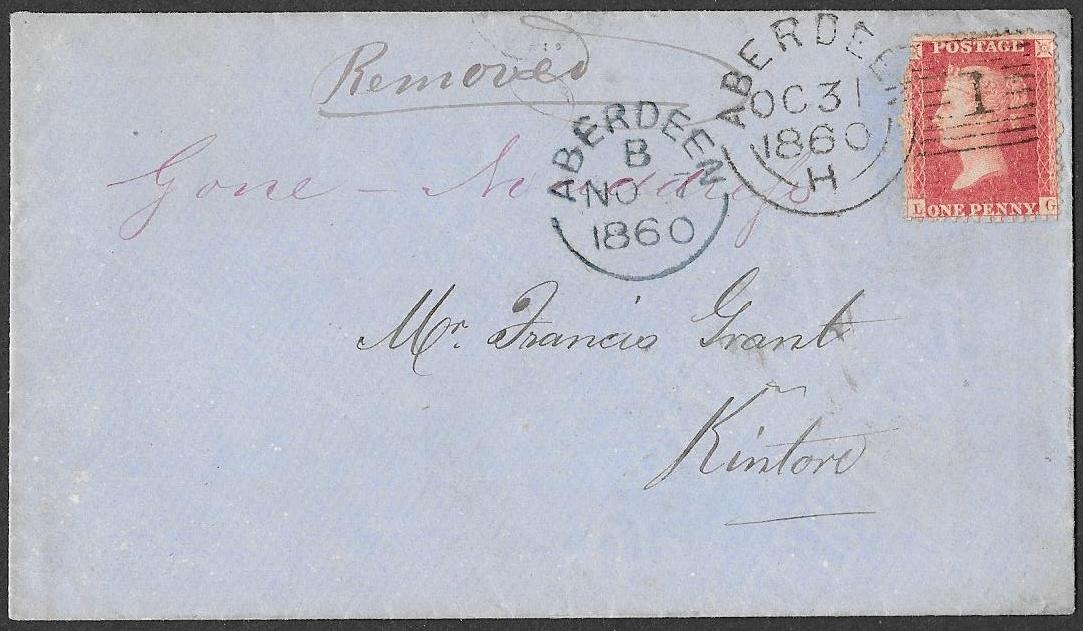 Removed
Gone - No address
ABERDEEN
OC 31
1860
H
ABERDEEN
B
NO
1860
POSTAGE
1
L ONE PENNY G
Mr. Francis Grant
Kintore